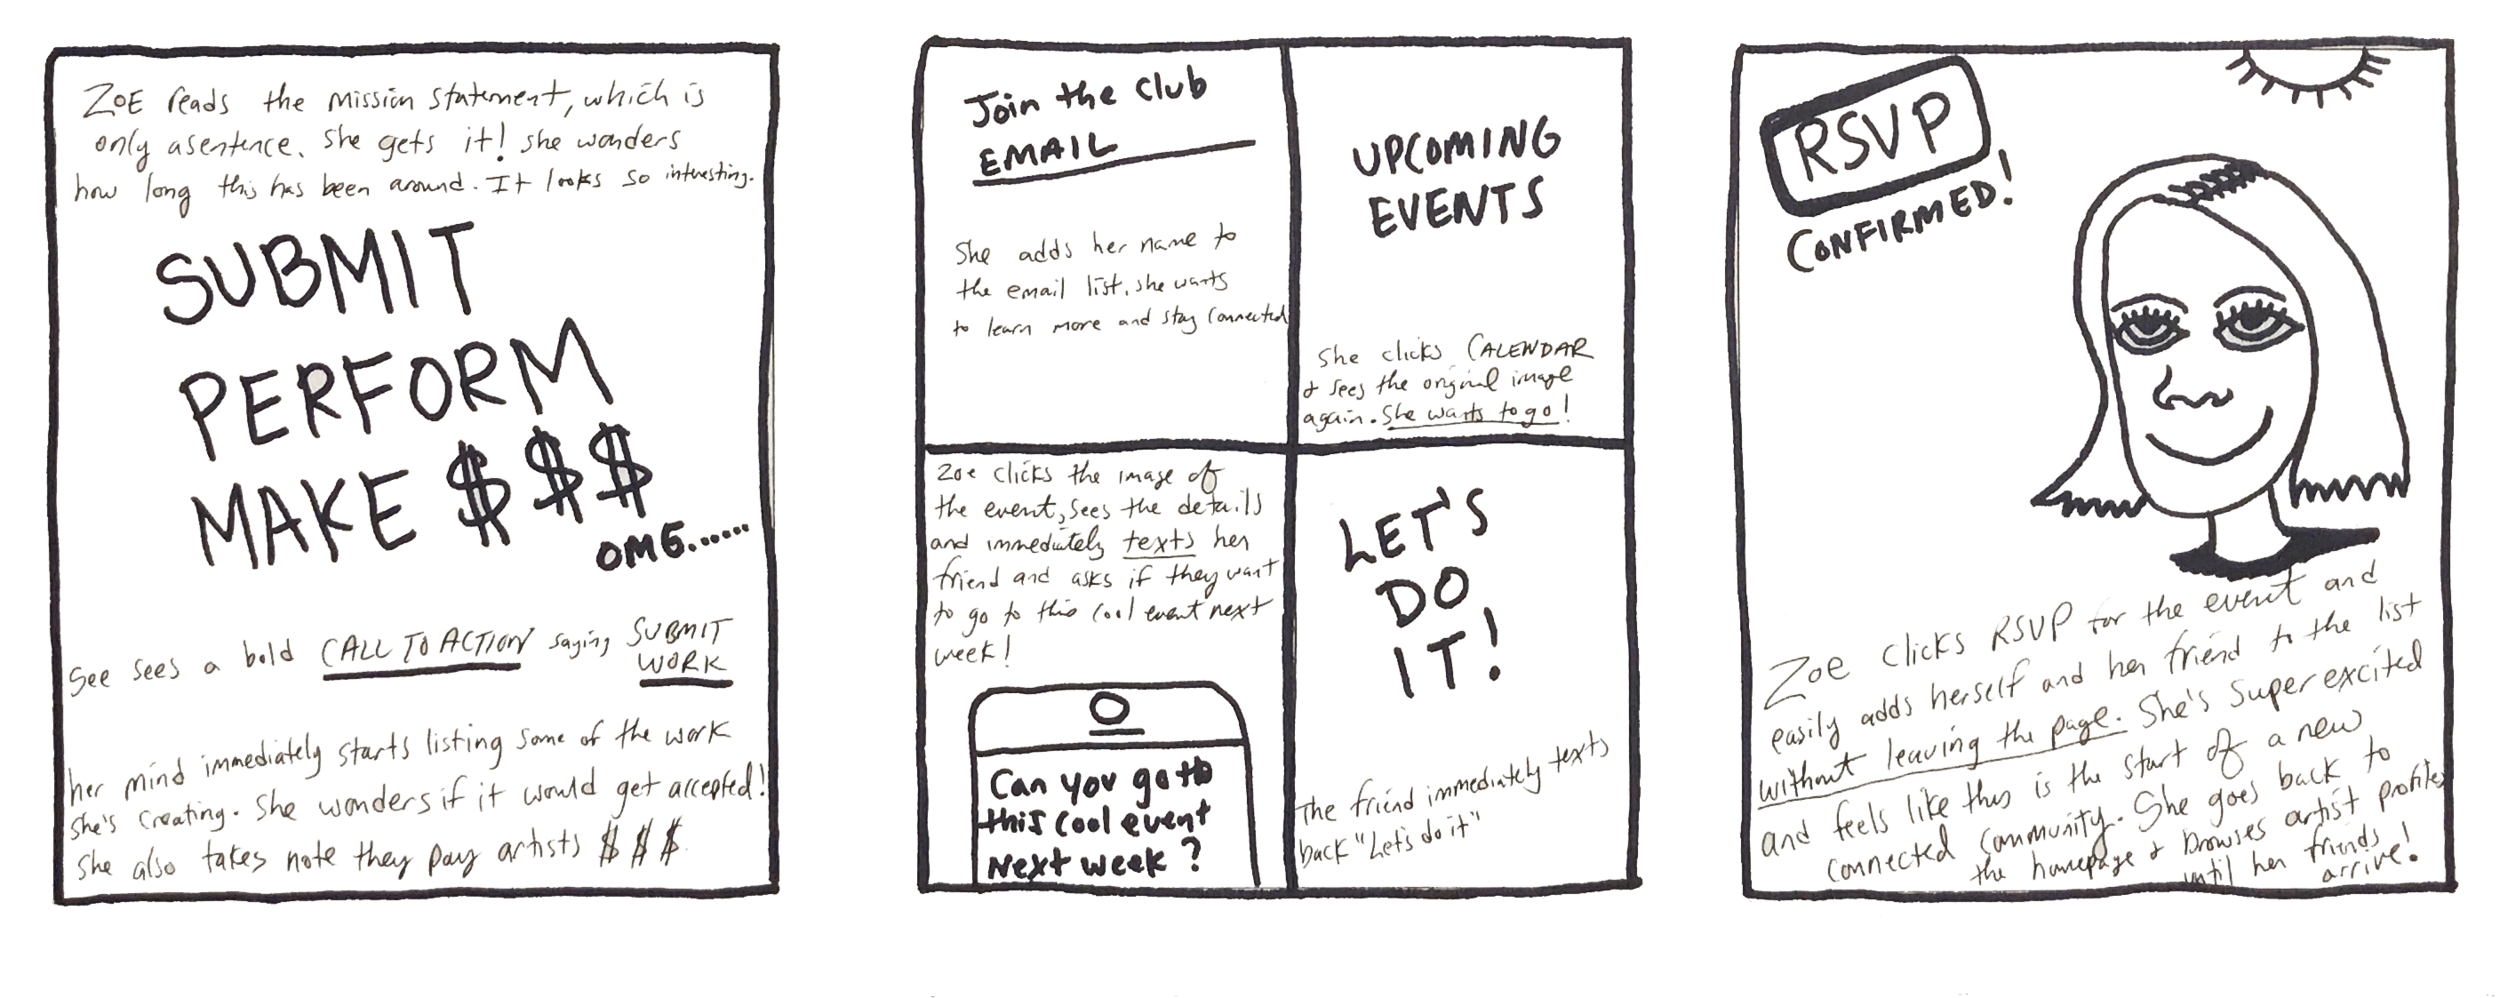 Zoe reads the mission statement, which is
only a sentence. She gets it! she wonders
how long this has been around. It looks so interesting.
SUBMIT
PERFORM
MAKE $$$
OMG......
See sees a bold CALL TO ACTION saying SUBMIT
WORK
her mind immediately starts listing some of the work
she's creating. She wonders if it would get accepted!
She also takes note they pay artists $$$
Join the club
EMAIL
She adds her name to
the email list. she wants
to learn more and stay connected
UPCOMING
EVENTS
She clicks CALENDAR
& sees the original image
again. She wants to go!
Zoe clicks the image of
the event, sees the details
and immediately texts her
friend and asks if they want
to go to this cool event next
week!
Can you go to
this cool event
Next week?
LET'S
DO
IT!
The friend immediately texts
back "Let's do it"
RSVP
CONFIRMED!
Zoe clicks RSVP for the event and
easily adds herself and her friend to the list
without leaving the page. She's super excited
and feels like this is the start of a new
connected community. She goes back to
the homepage & browses artist profiles
until her friends
arrive!